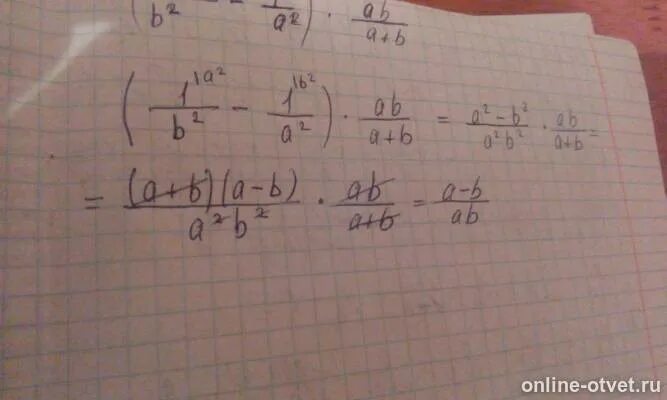 ( /b² - 1/a²) · ab/a+b
(1^|a²/b² - 1^|b²/a²) · ab/a+b = a²-b²/a²b² · ab/a+b =
= (a+b)(a-b)/a²b² · ab/a+b = a-b/ab
online-otvet.ru